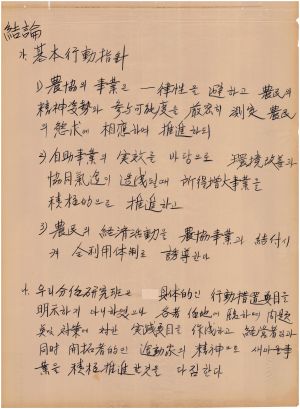 結論
가. 基本行動指針
1) 農協의 事業은 一律性을 避하고 農民의
精神姿勢와 參与可能度를 嚴密히 測定 農民
의 慾求에 相應하여 推進하되
2) 自助事業의 実效를 바탕으로 環境改善과
協同気造의 造成으로 所得增大事業을
積極的으로 推進하고
3) 農民의 経済活動을 農協事業과 結付시
켜 全利用体制로 誘導한다
4. 우리 分任研究班은 具体的인 行動措置要目을
明示하지 아니하였으나 各者 任地에 臨하여 問題
点과 対策에 対한 実践要目을 作成하고 経営者임과
同時 開拓者的인 運動家의 精神으로 새마을事
業을 積極 推進할것을 다짐한다